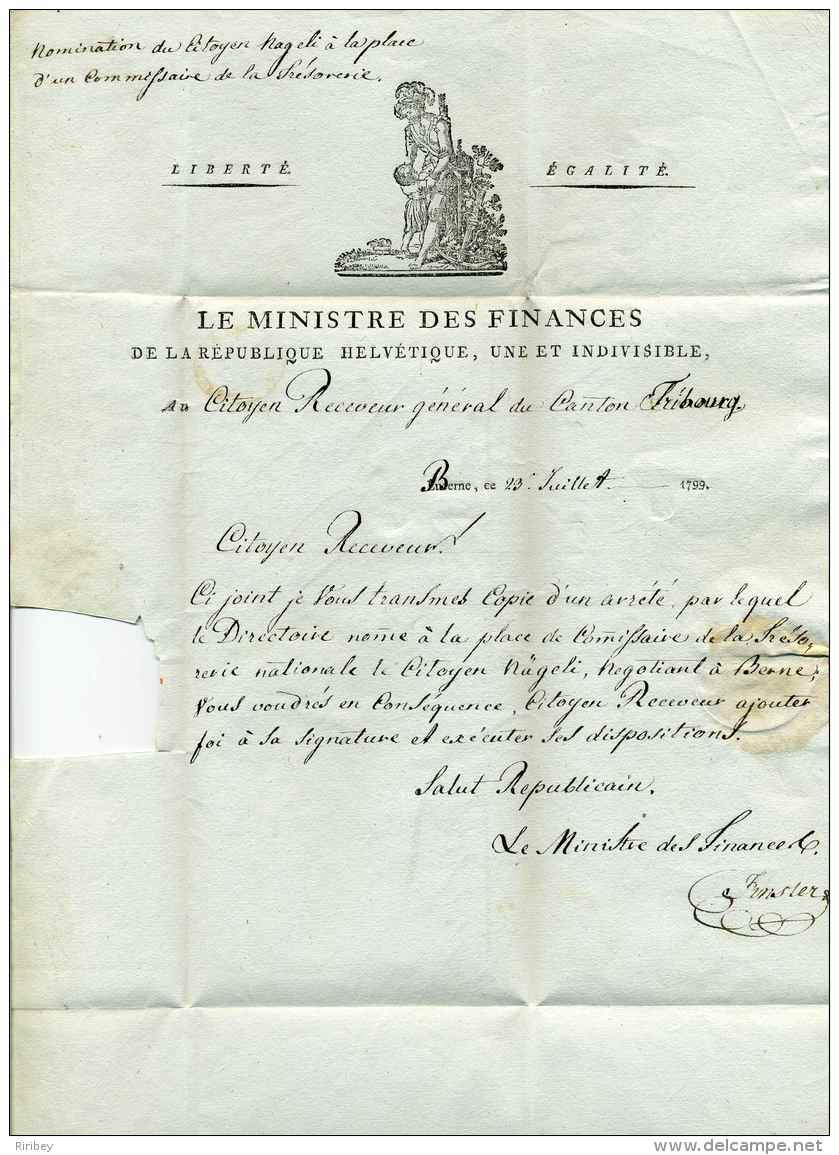 Nomination du Citoyen Nageli à la place
d'un Commissaire de la Trésorerie.
LIBERTÉ. ÉGALITÉ.
LE MINISTRE DES FINANCES
DE LA RÉPUBLIQUE HELVÉTIQUE, UNE ET INDIVISIBLE,
Au Citoyen Receveur général du Canton Fribourg.
Berne, ce 23e Juillet 1799.
Citoyen Receveur!
Ci joint je Vous transmes Copie d'un arrété, par lequel
le Directoire nome à la place de Comissaire de la Tréso-
rerie nationale le Citoyen Nägeli, Negotiant à Berne;
Vous voudrés en Conséquence, Citoyen Receveur ajouter
foi à sa signature et exécuter ses dispositions.
Salut Republicain.
Le Ministre des Finances.
Finsler
Riribey
www.delcampe.net